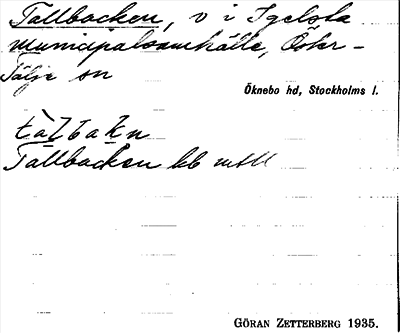 Tallbacken, v i Igelsta
municipalsamhälle, Öster-
Tälje sn
Öknebo hd, Stockholms l.
tàlbakn
Tallbacken kb mtll
GÖRAN ZETTERBERG 1935.